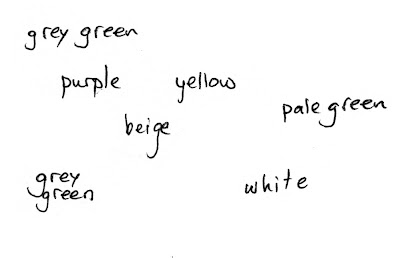 grey green
purple yellow
pale green
beige
grey
green
white